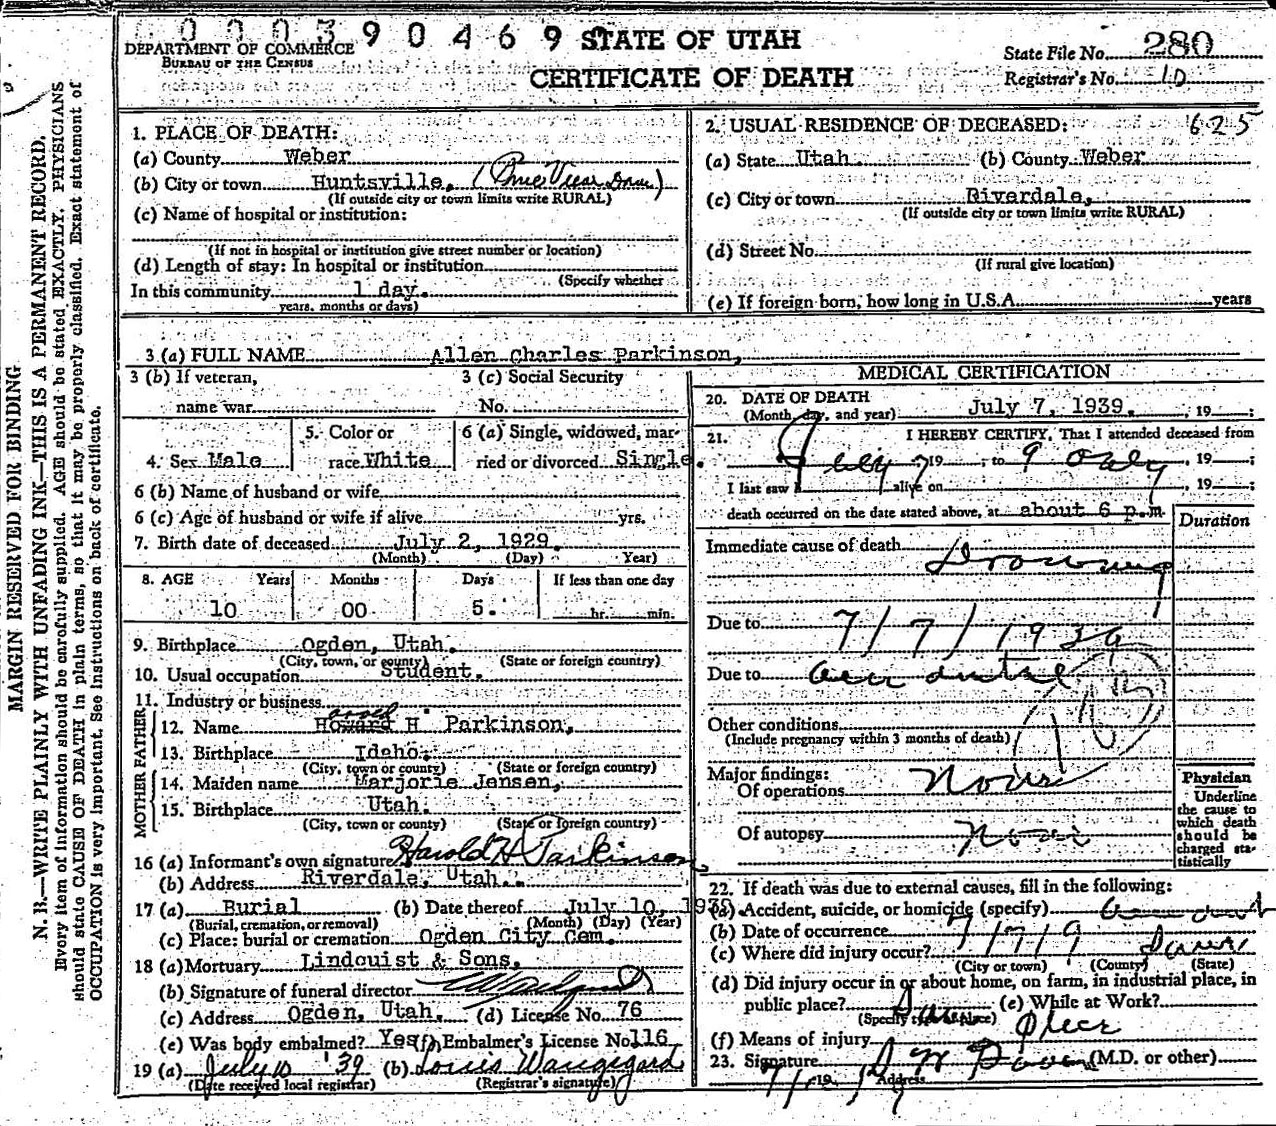 000390469 STATE OF UTAH
DEPARTMENT OF COMMERCE
BUREAU OF THE CENSUS
CERTIFICATE OF DEATH
State File No. 280
Registrar's No. 10
MARGIN RESERVED FOR BINDING
N. B.—WRITE PLAINLY WITH UNFADING INK—THIS IS A PERMANENT RECORD.
Every item of information should be carefully supplied. AGE should be stated EXACTLY. PHYSICIANS
should state CAUSE OF DEATH in plain terms, so that it may be properly classified. Exact statement of
OCCUPATION is very important. See instructions on back of certificate.
1. PLACE OF DEATH:
(a) County Weber
(b) City or town Huntsville, (Pine View Dam)
(If outside city or town limits write RURAL)
(c) Name of hospital or institution:
(If not in hospital or institution give street number or location)
(d) Length of stay: In hospital or institution
(Specify whether
In this community 1 day.
years, months or days)
2. USUAL RESIDENCE OF DECEASED: 625
(a) State Utah (b) County Weber
(c) City or town Riverdale,
(If outside city or town limits write RURAL)
(d) Street No.
(If rural give location)
(e) If foreign born, how long in U.S.A. years
3 (a) FULL NAME Allen Charles Parkinson,
3 (b) If veteran,
name war
3 (c) Social Security
No.
4. Sex Male
5. Color or
race White
6 (a) Single, widowed, mar-
ried or divorced Single.
6 (b) Name of husband or wife
6 (c) Age of husband or wife if alive yrs.
7. Birth date of deceased July 2, 1929.
(Month) (Day) Year)
8. AGE Years Months Days If less than one day
10 00 5. hr. min.
9. Birthplace Ogden, Utah.
(City, town, or county) (State or foreign country)
10. Usual occupation Student.
11. Industry or business
FATHER
12. Name Howard H Parkinson,
13. Birthplace Idaho.
(City, town or county) (State or foreign country)
MOTHER
14. Maiden name Marjorie Jensen,
15. Birthplace Utah.
(City, town or county) (State or foreign country)
16 (a) Informant's own signature Harold H Parkinson
(b) Address Riverdale, Utah.
17 (a) Burial (b) Date thereof July 10, 1939
(Burial, cremation, or removal) (Month) (Day) (Year)
(c) Place: burial or cremation Ogden City Cem.
18 (a) Mortuary Lindquist & Sons.
(b) Signature of funeral director
(c) Address Ogden, Utah. (d) License No. 76
(e) Was body embalmed? Yes (f) Embalmer's License No. 116
19 (a) July 10 '39 (b) Louis Wangsgard
(Date received local registrar) (Registrar's signature)
MEDICAL CERTIFICATION
20. DATE OF DEATH
(Month, day, and year) July 7, 1939. , 19 ;
21. I HEREBY CERTIFY, That I attended deceased from
July 7 19 ; to 9 only , 19 ;
I last saw h alive on , 19 ;
death occurred on the date stated above, at about 6 p.m
Duration
Immediate cause of death Drowning
Due to 7/7/1939
Due to accidental
Other conditions
(Include pregnancy within 3 months of death)
Major findings:
Of operations None
Of autopsy None
Physician
Underline
the cause to
which death
should be
charged sta-
tistically
22. If death was due to external causes, fill in the following:
(a) Accident, suicide, or homicide (specify)
(b) Date of occurrence 7/7/9
(c) Where did injury occur?
(City or town) (County) (State)
(d) Did injury occur in or about home, on farm, in industrial place, in
public place? (e) While at Work?
(Specify type of place)
(f) Means of injury
23. Signature (M.D. or other)
Address